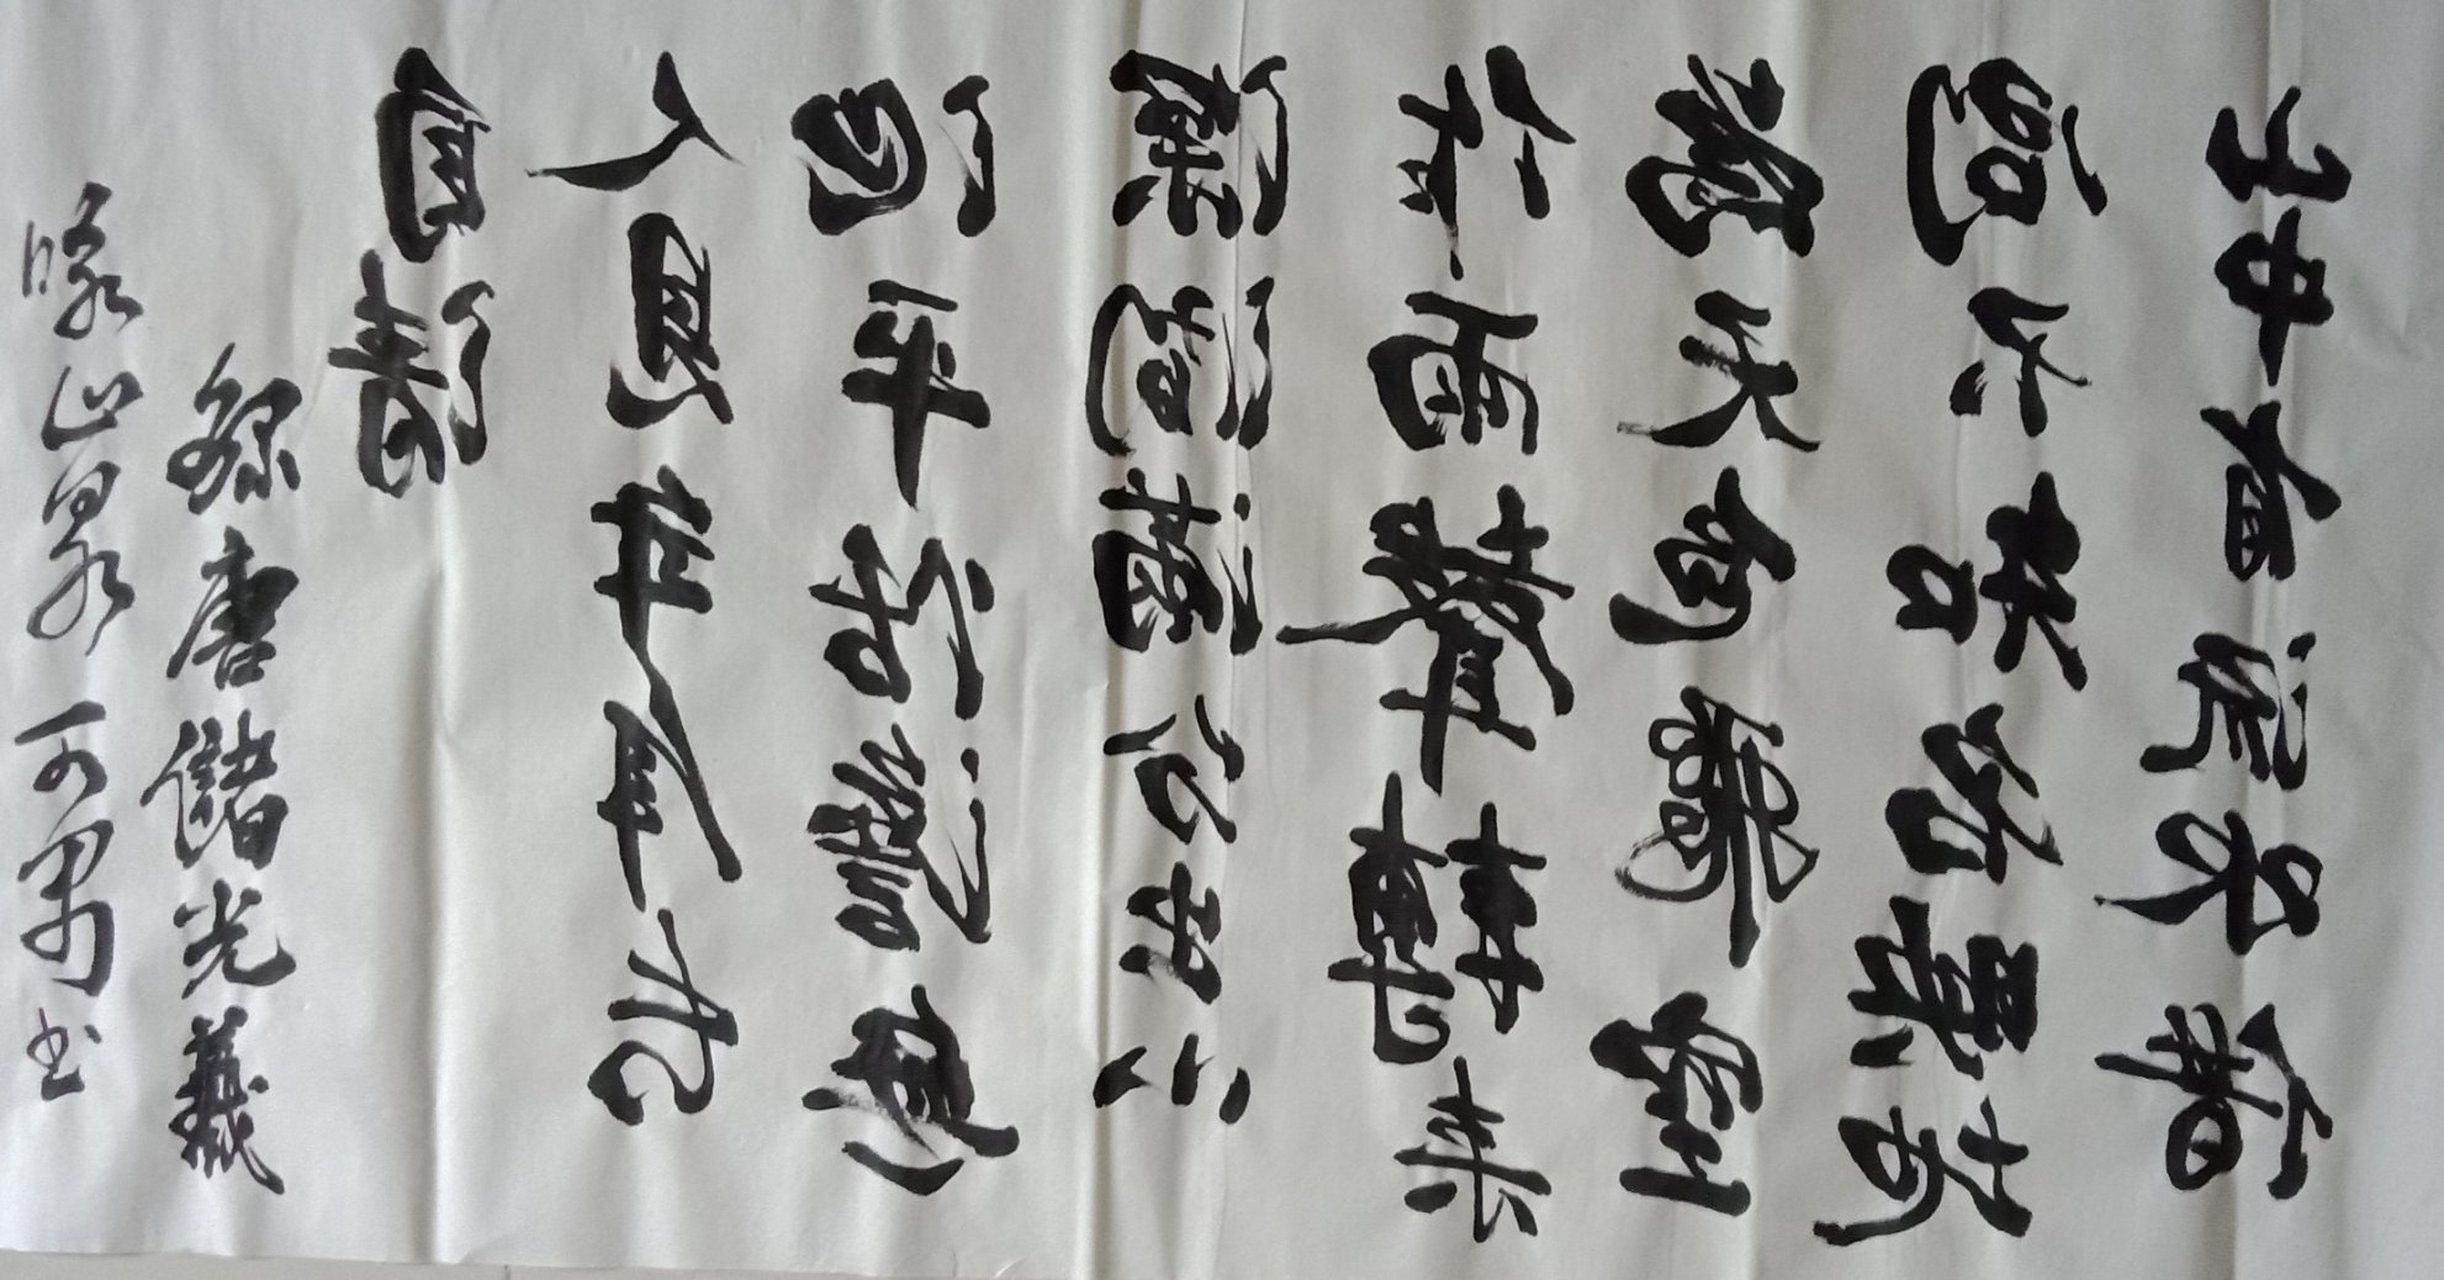 山中有流水借
問不知名映地
為天色飛空
作雨聲轉来
深澗滿分出小
池平恬澹無
人見年年長
自清
錄唐儲光羲
咏山泉 可 书